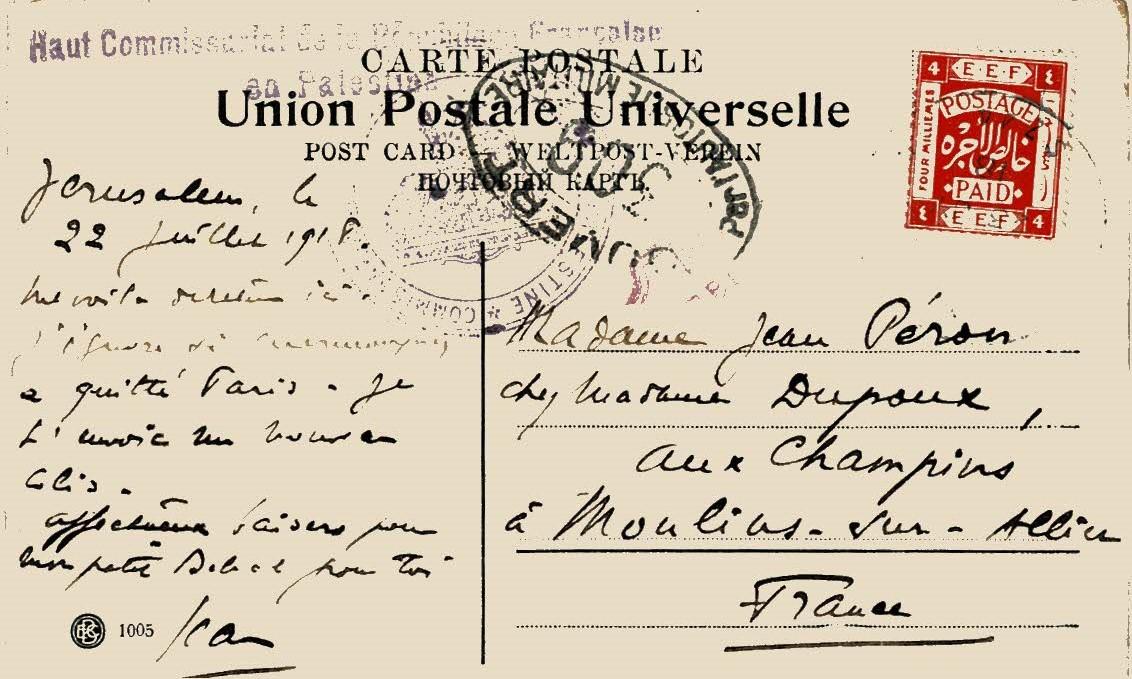 Haut Commissariat de la République Française
en Palestine
CARTE POSTALE
Union Postale Universelle
POST CARD — WELTPOST-VEREIN
ПОЧТОВЫЙ КАРТЪ.
4 E·E·F ٤
POSTAGE
خالص الأجرة
PAID
FOUR MILLIEMES
٤ E·E·F 4
Jerusalem, le
22 juillet 1918.
Me voilà
a quitté Paris. Je
t'envoie un nouveau
affectueux baisers pour
mon petit pour toi
Jean
1005
Madame Jean Péron
chez Madame Dupoux,
aux Champins
à Moulins-sur-Allier
France